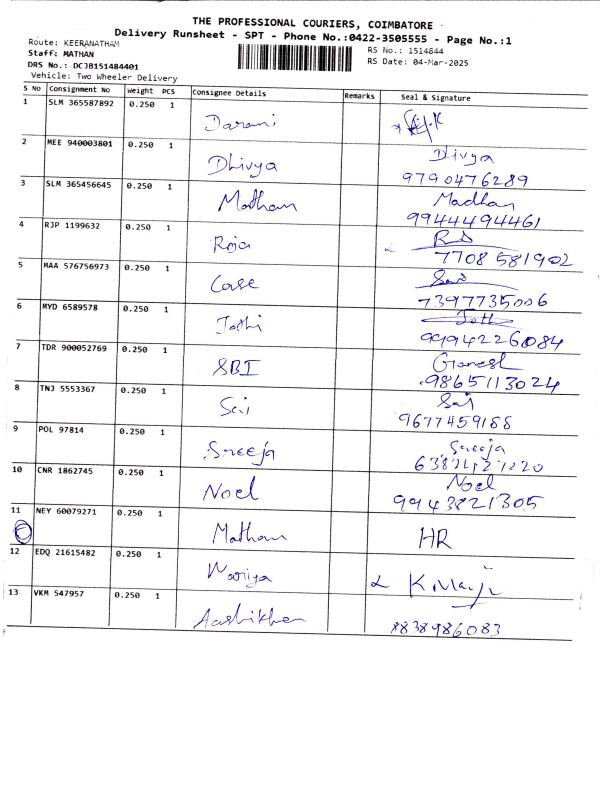 THE PROFESSIONAL COURIERS, COIMBATORE
Delivery Runsheet - SPT - Phone No.:0422-3505555 - Page No.:1
Route: KEERANATHAM
RS No.: 1514844
Staff: MATHAN
RS Date: 04-Mar-2025
DRS No.: DCJB151484401
Vehicle: Two Wheeler Delivery
S No Consignment No Weight PCS Consignee Details Remarks Seal & Signature
1 SLM 365587892 0.250 1
Darani
2 MEE 940003801 0.250 1 Divya
Dhivya 9790476289
3 SLM 365456645 0.250 1 Madhan
Mathan 9944494461
4 RJP 1199632 0.250 1
Roja 7708581902
5 MAA 576756973 0.250 1
Case 7397735006
6 MYD 6589578 0.250 1
Jothi 9994226084
7 TDR 900052769 0.250 1 Ganesh
SBI 9865113024
8 TNJ 5553367 0.250 1 Sai
Sai 9677459188
9 POL 97814 0.250 1 Sreeja
Sreeja
10 CNR 1862745 0.250 1 Noel
Noel 9943821305
11 NEY 60079271 0.250 1
Mathan HR
12 EDQ 21615482 0.250 1
13 VKM 547957 0.250 1
8838986083